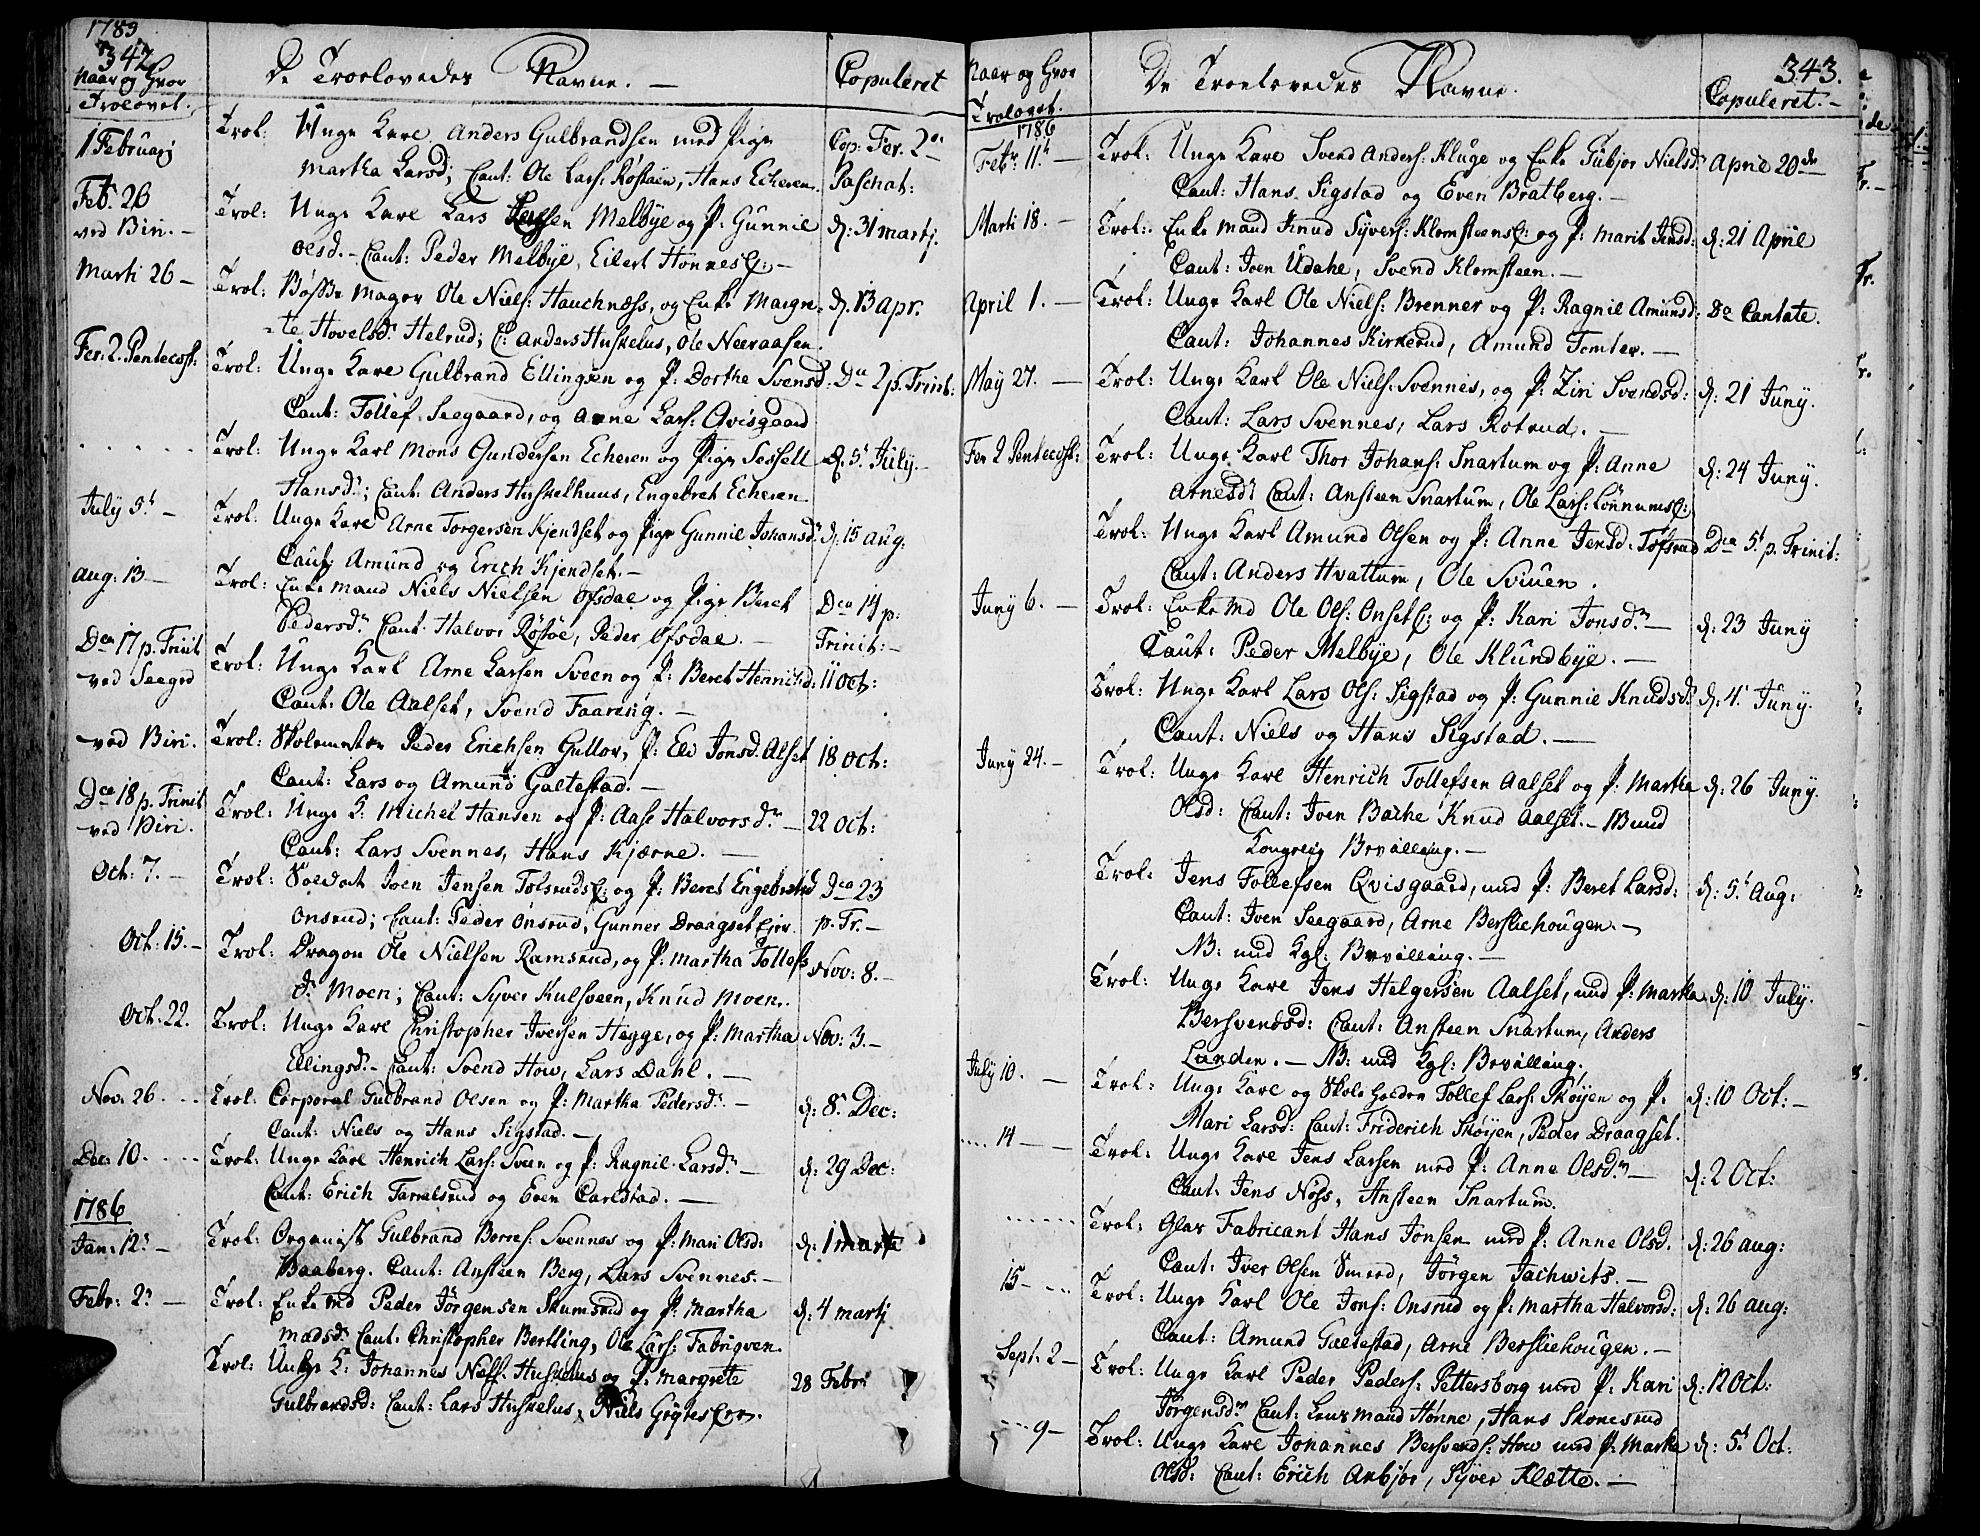 1785
342
Naar og Hvor
Troelovet.
De Troelovedes Navne. —
Copuleret
1 Februarj
Trol: Unge Karl Anders Gulbrandsen med Pige
Cop: Fer. 2da
Martha Larsd; Caut: Ole Lars: Røstøen, Hans Echeren.
Paschat:
Feb. 26
ved Biri. —
Trol: Unge Karl Lars Melbye og P: Gunnil
d: 31 martj.
Olsd. — Caut: Peder Melbye, Eilert Honnes Ej: —
Marti 26 —
Trol: Bøsse Mager Ole Niels: Hauchness, og Enke Margre-
d. 13 apr.
te Hovelsd. Helrud; C: Anders Huskelus, Ole Neeraasen.
Fer: 2. Pentecost:
Trol: Unge Karl Gulbrand Ellingsen og P: Dorthe Svensd:
Da 2 p. Trinit:
Caut: Tollef Seegaard, og Arne Lars: Qvisgaard
. . . . .
Trol: Unge Karl Mons Gundersen Echeren og Pige Sessell
d. 5t July. —
Hansd:; Caut: Anders Huskelhuus, Engebret Echeren
July 5t —
Trol: Unge Karl Arne Torgersen Kjendset og Pige Gunnil Johansd:
d. 15 aug:
Caut: Amund og Erich Kjendset. —
Aug. 13 —
Trol: Enke Mand Niels Nielsen Ofsdal og Pige Beret
Dca 14 p:
Pedersd. Caut. Halvor Røstøe, Peder Ofsdal. —
Trinit: —
Dca 17 p. Trinit
ved Seegrd
Trol: Unge Karl Arne Larsen Sveen og P: Beret Henrichsd:
11 Oct:
Caut: Ole Aalset, Svend Faaring. —
— ved Biri.
Trol: Skolemester Peder Erichsen Gullor, P: Eli Jonsd. Alset
18 Oct:
Caut: Lars og Amund Galtestad. —
Dca 18 p. Trinit
ved Biri.
Trol: Unge K: Michel Hansen og P: Aase Halvorsd. —
22 Oct:
Caut: Lars Svennes, Hans Kjærne. —
Oct: 7. —
Trol: Soldat Joen Jensen Tolsruds Ej: og P: Beret Engebretsd
Dca 23
Onsrud; Caut: Peder Onsrud, Gunner Draagset Eje.
p. Tr. —
Oct: 15. —
Trol: Dragon Ole Nielsen Ramsrud, og P: Martha Tollefs
Nov: 8. —
d. Moen; Caut: Syver Kulsveen, Knud Moen.
Oct. 22.
Trol: Unge Karl Christopher Iversen Hegge, og P: Martha
Nov: 3. —
Ellingsd. — Caut: Svend How, Lars Dahl. —
Nov: 26. . .
Trol: Corporal Gulbrand Olsen og P: Martha Pedersd. —
d: 8 Dec:
Caut: Niels og Hans Sigstad. —
Dec: 10. . . . .
Trol: Unge Karl Henrich Lars: Sveen og P: Ragnil Larsd. —
d: 29 Dec:
Caut: Erich og Even Carlstad. —
1786
Jan: 12. —
Trol: Organist Gulbrand Borres: Svennes og P: Mari Olsd:
d: 1 marts
Baaberg. Caut: Ansteen Berg, Lars Svennes. —
Febr: 2. —
Trol: Enke Md Peder Jörgensen Skumsrud og P: Martha
d: 4 martj
Madsd. Caut: Christopher Bertling, Ole Lars: Fabriqven.
Trol: Unge K: Johannes Niels: Huskelus og P: Margrete
28 Febr:
Gulbrandsd: Caut: Lars Huskelus, Niels
343.
Naar og Hvor
Trolovet.
De Troelovedes Navne.
Copuleret. —
1786
Febr. 11t —
Trol: Unge Karl Svend Anders: Kluge og Enke Gubjor Nielsd:
April 20de
Caut: Hans Sigstad og Even Bratberg. —
Marti 18. —
Trol: Enke Mand Knud Syvers: Klomsteens Ej: og P: Marit Jensd:
d: 21 April
Caut: Joen Udahl, Svend Klomsteen. —
April 1. —
Trol: Unge Karl Ole Niels: Brenner og P: Ragnil Amunsd:
Da Cantate.
Caut: Johannes Kirkerud, Amund Femter. —
May 27. —
Trol: Unge Karl Ole Niels: Svennes, og P: Ziri Svendsd:
d: 21 Juny.
Caut: Lars Svennes, Lars Rotrud. —
Fer 2 Pentecost:
Trol: Unge Karl Thor Johans: Snartum og P: Anne
d: 24 Juny.
Arnesd: Caut: Ansteen Snartum, Ole Lars: Lönnums Ej:
Trol: Unge Karl Amund Olsen og P: Anne Jensd: Tofsrud
Dca 5t p. Trinit:
Caut: Anders Hvattum, Ole Sviuen.
Juny 6. —
Trol: Enke Md Ole Ols: Onset Ej: og P: Kari Jonsd. —
d: 23 Juny
Caut: Peder Melbye, Ole Klundbye. —
Trol: Unge Karl Lars Ols: Sigstad og P: Gunnil Knudsd.
d: 4t Juny.
Caut: Niels og Hans Sigstad. —
Juny 24. —
Trol: Unge Karl Henrich Tollefsen Aalset og P: Martha
d: 26 Juny.
Olsd: Caut: Joen Bache Knud Aalset. — NB med
Kongelig Bevilling. —
Trol: Jens Tollefsen Qvisgaard, med P: Beret Larsd:
d: 5t Aug:
Caut: Iven Seegaard, Arne Bersliehougen. —
NB: med Kgl: Bevilling. —
Trol: Unge Karl Jens Helgersen Aalset, med P: Martha
d: 10 July.
Bersvendsd: Caut: Ansteen Snartum, Anders
Lunden. — NB: med Kgl: Bevilling,
July 10. —
Trol: Unge Karl og Skole Holder Tollef Lars: Skøyen og P.
d: 10 Oct: —
Mari Larsd: Caut: Friderich Skøyen, Peder Draagset.
. . . . 14 —
Trol: Unge Karl Jens Larsen med P: Anne Olsd. —
d: 2 Oct:
Caut: Jens Noss, Ansteen Snartum.
. . . . . .
Trol: Glas Fabricant Hans Jonsen med P: Anne Olsd.
d: 26 aug:
Caut: Iver Olsen Smed, Jörgen Jachwits. —
15 — . .
Trol: Unge Karl Ole Jons: Onsrud og P: Martha Halvorsd:
d: 26 aug:
Caut: Amund Galtestad, Arne Bersliehougen. —
Sept: 2 —
Trol: Unge Karl Peder Peders: Pettersborg med P: Kari
d: 12 Oct:
Jörgensd: Caut: Lens Mand Hönne, Hans Skonesrud
. . . 9 —
Trol: Unge Karl Johannes Bersvends: How med P: Martha
d: 5t Oct:
Olsd: Caut: Erich Anbjor, Syver Klætte. —